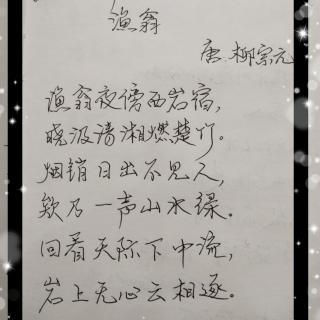 渔翁
唐 柳宗元
渔翁夜傍西岩宿，
晓汲清湘燃楚竹。
烟销日出不见人，
欸乃一声山水绿。
回看天际下中流，
岩上无心云相逐。